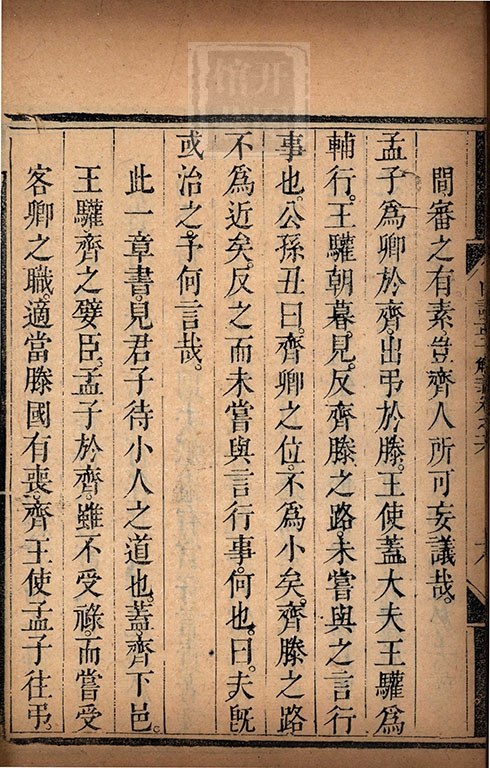 間審之有素豈齊人所可妄議哉。
孟子爲卿於齊出弔於滕。王使蓋大夫王驩爲
輔行。王驩朝暮見。反齊滕之路。未嘗與之言行
事也。公孫丑曰。齊卿之位。不爲小矣。齊滕之路。
不爲近矣。反之而未嘗與言行事。何也。曰。夫旣
或治之。予何言哉。
此一章書。見君子待小人之道也。蓋齊下邑。
王驩齊之嬖臣。孟子於齊。雖不受祿。而嘗受
客卿之職。適當滕國有喪。齊王使孟子往弔。